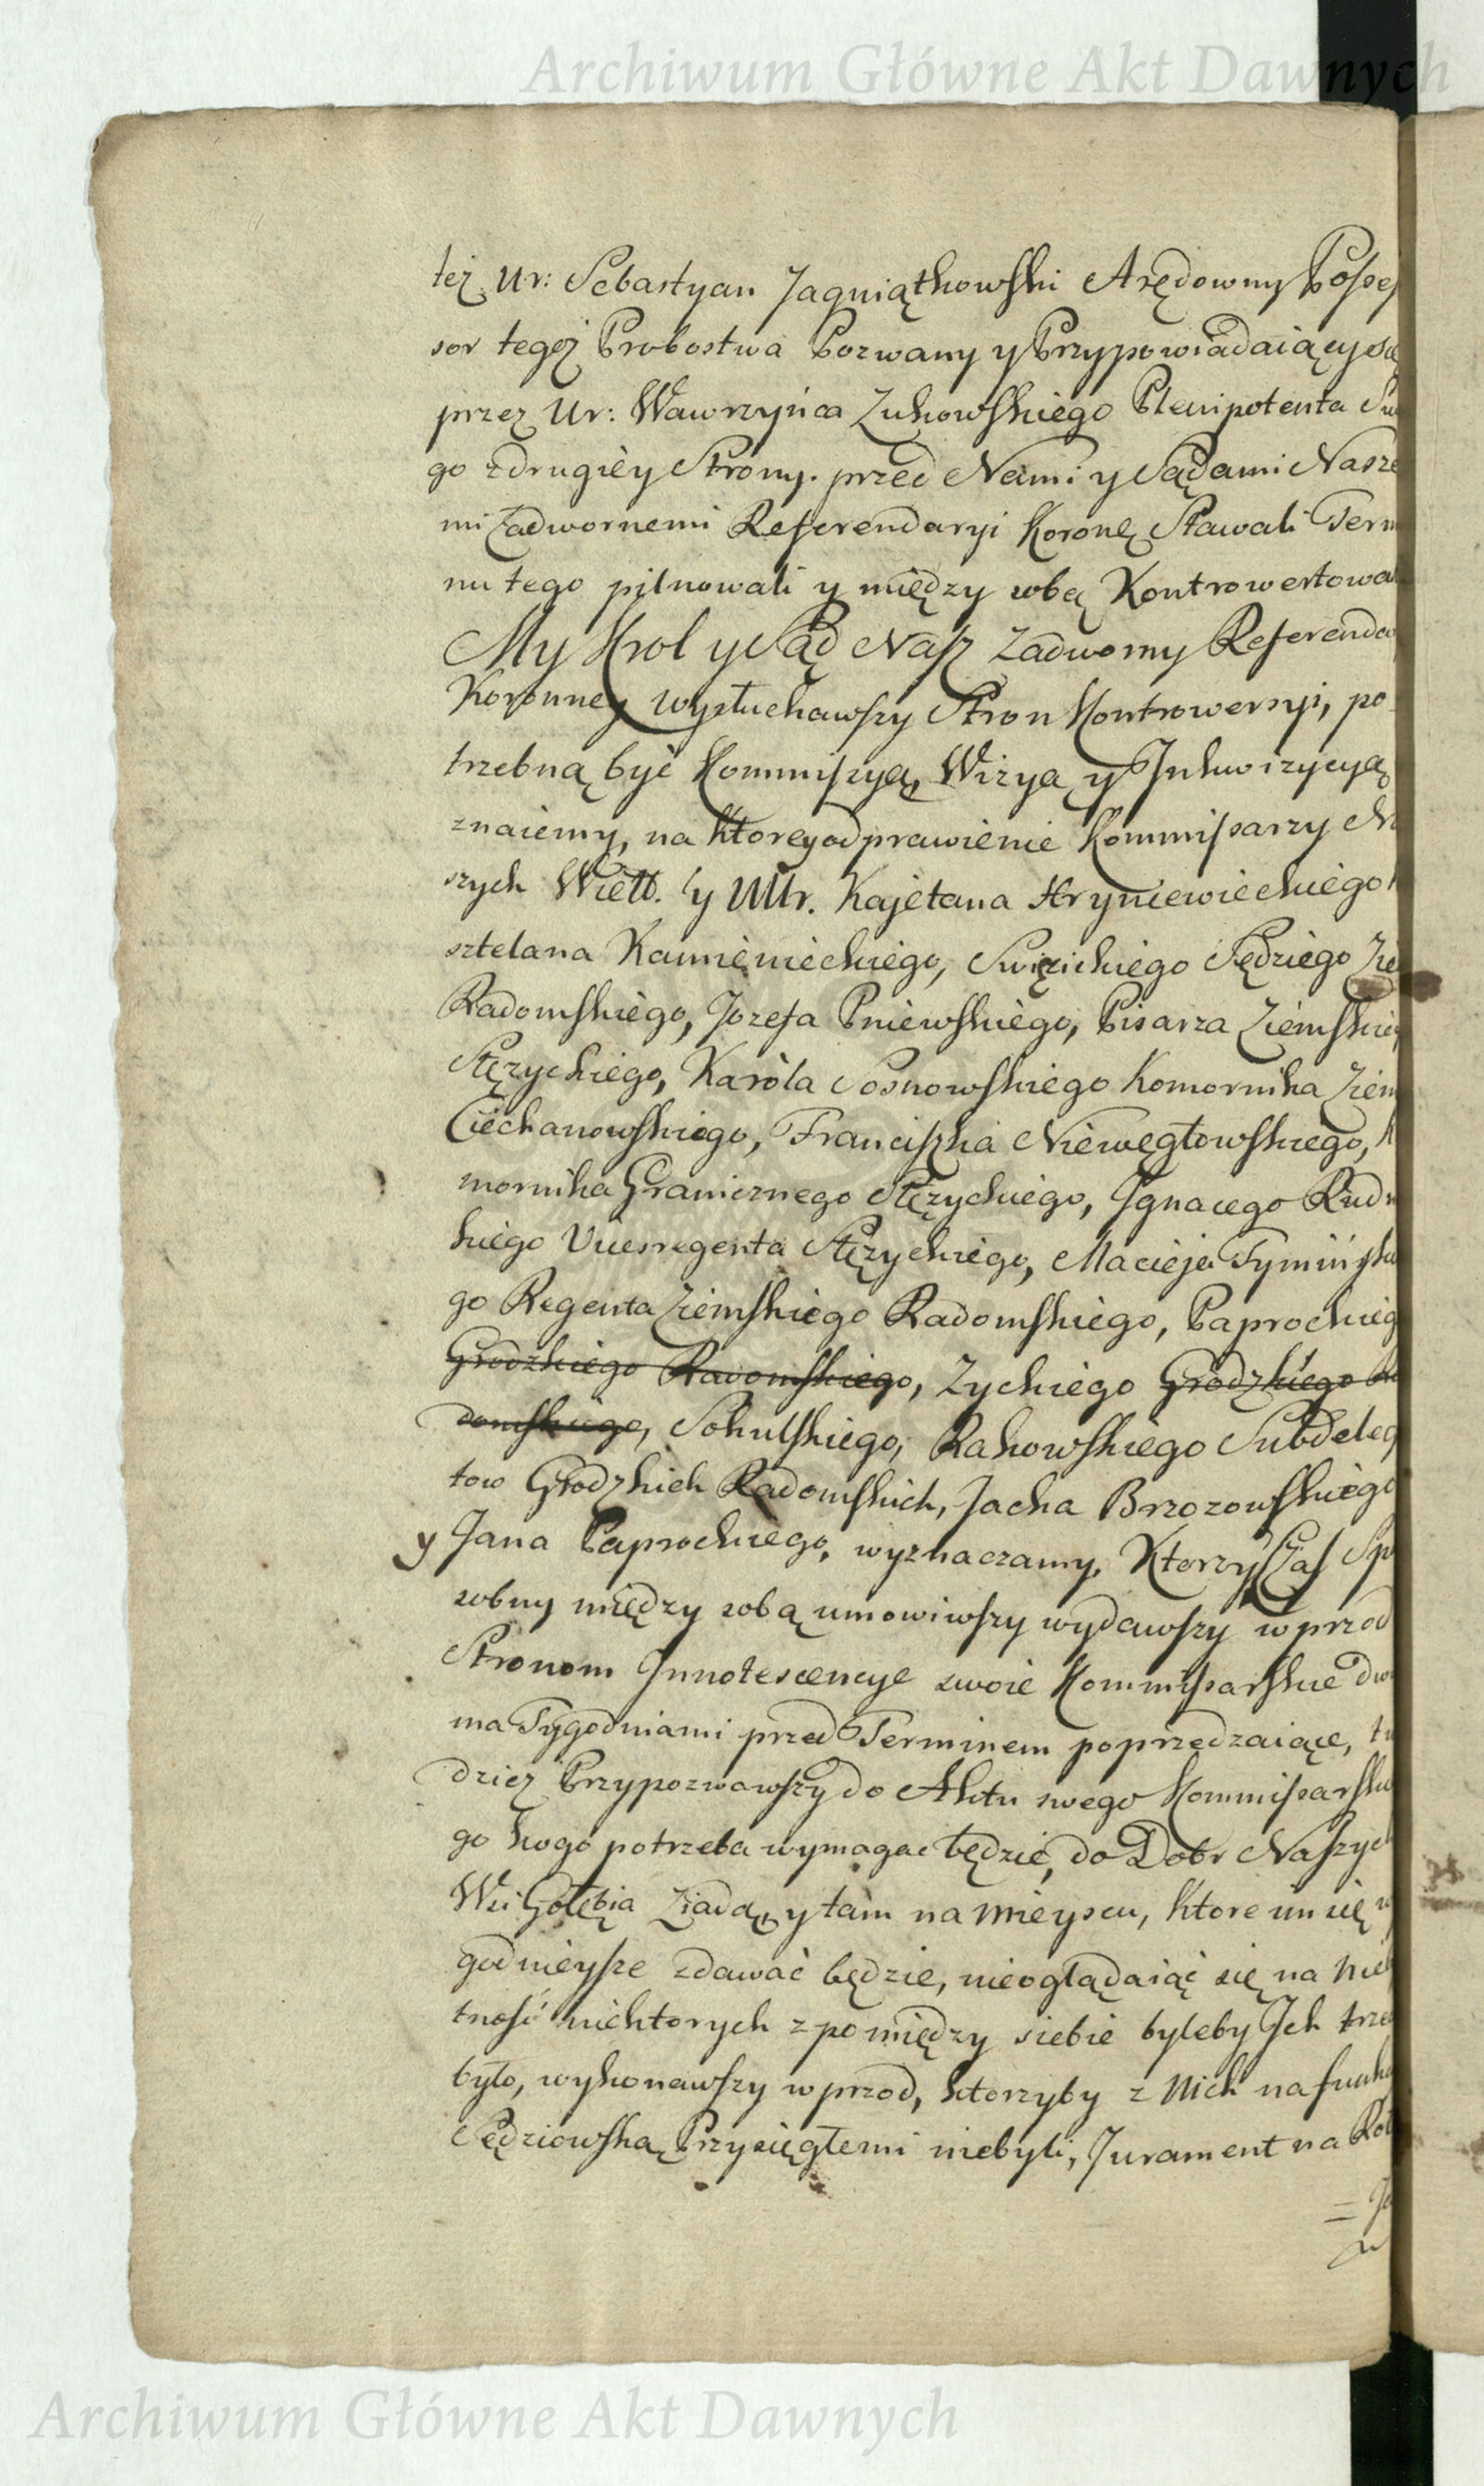 Archiwum Główne Akt Dawnych
też Ur: Sebastyan Jagniątkowski Arędowny Possess
sor tegoż Probostwa Pozwany y Przypowiadaiący się
przez Ur: Wawrzyńca Zukowskiego Plenipotenta Sw
go z drugiéy Strony. przed Nami y Sądami Nasze
mi Zadwornemi Referendaryi Koronę Stawali Term
nu tego pilnowali y między sobą Kontrowertowa
My Krol y Sąd Nasz Zadworny Referenda
Koronney wysłuchawszy Stron Kontrowersyi, po
trzebną być Kommissyą, Wizyą y Inkwizycyą
znaiemy, na ktorey odprawienie Kommissarzy Na
szych Wiell. y UUr. Kajetana Hryniewieckiego K
sztelana Kamienieckiego, Swięzickiego Sędziego Zie
Radomskiego, Jozefa Pniewskiego, Pisarza Ziemskieg
Stężyckiego, Karola Sosnowskiego Komornika Ziem
Ciechanowskiego, Franciszka Niewęgłowskiego, K
mornika Granicznego Stężyckiego, Ignacego Rudn
kiego Vicesregenta Stężyckiego, Macieja Tymińsk
go Regenta Ziemskiego Radomskiego, Paprockieg
Grodzkiego Radomskiego, Zyckiego Grodzkiego Ra
domskiego, Sokulskiego, Rakowskiego Subdeleg
tow Grodzkich Radomskich, Jacka Brzozowskiego
y Jana Paprockiego, wyznaczamy, Ktorzy Czas Spo
sobny między sobą umowiwszy wydawszy w przod
Stronom Innotescencye swoie Kommissarskie dw
ma Tygodniami przed Terminem poprzedzaiące, tu
dziez Przypozwawszy do Aktu swego Kommissarski
go kogo potrzeba wymagac będzie, do Dobr Naszych
Wsi Gołębia Ziadą, y tam na mieyscu, ktore im się w
godnieysze zdawać będzie, nieoglądaiąć się na nieb
tność niektorych z pomiędzy siebie byleby Ich trze
było, wykonawszy w przod, ktorzyby z Nich na funkc
Sędziowską Przysięgłemi niebyli, Jurament na Rot
Archiwum Główne Akt Dawnych